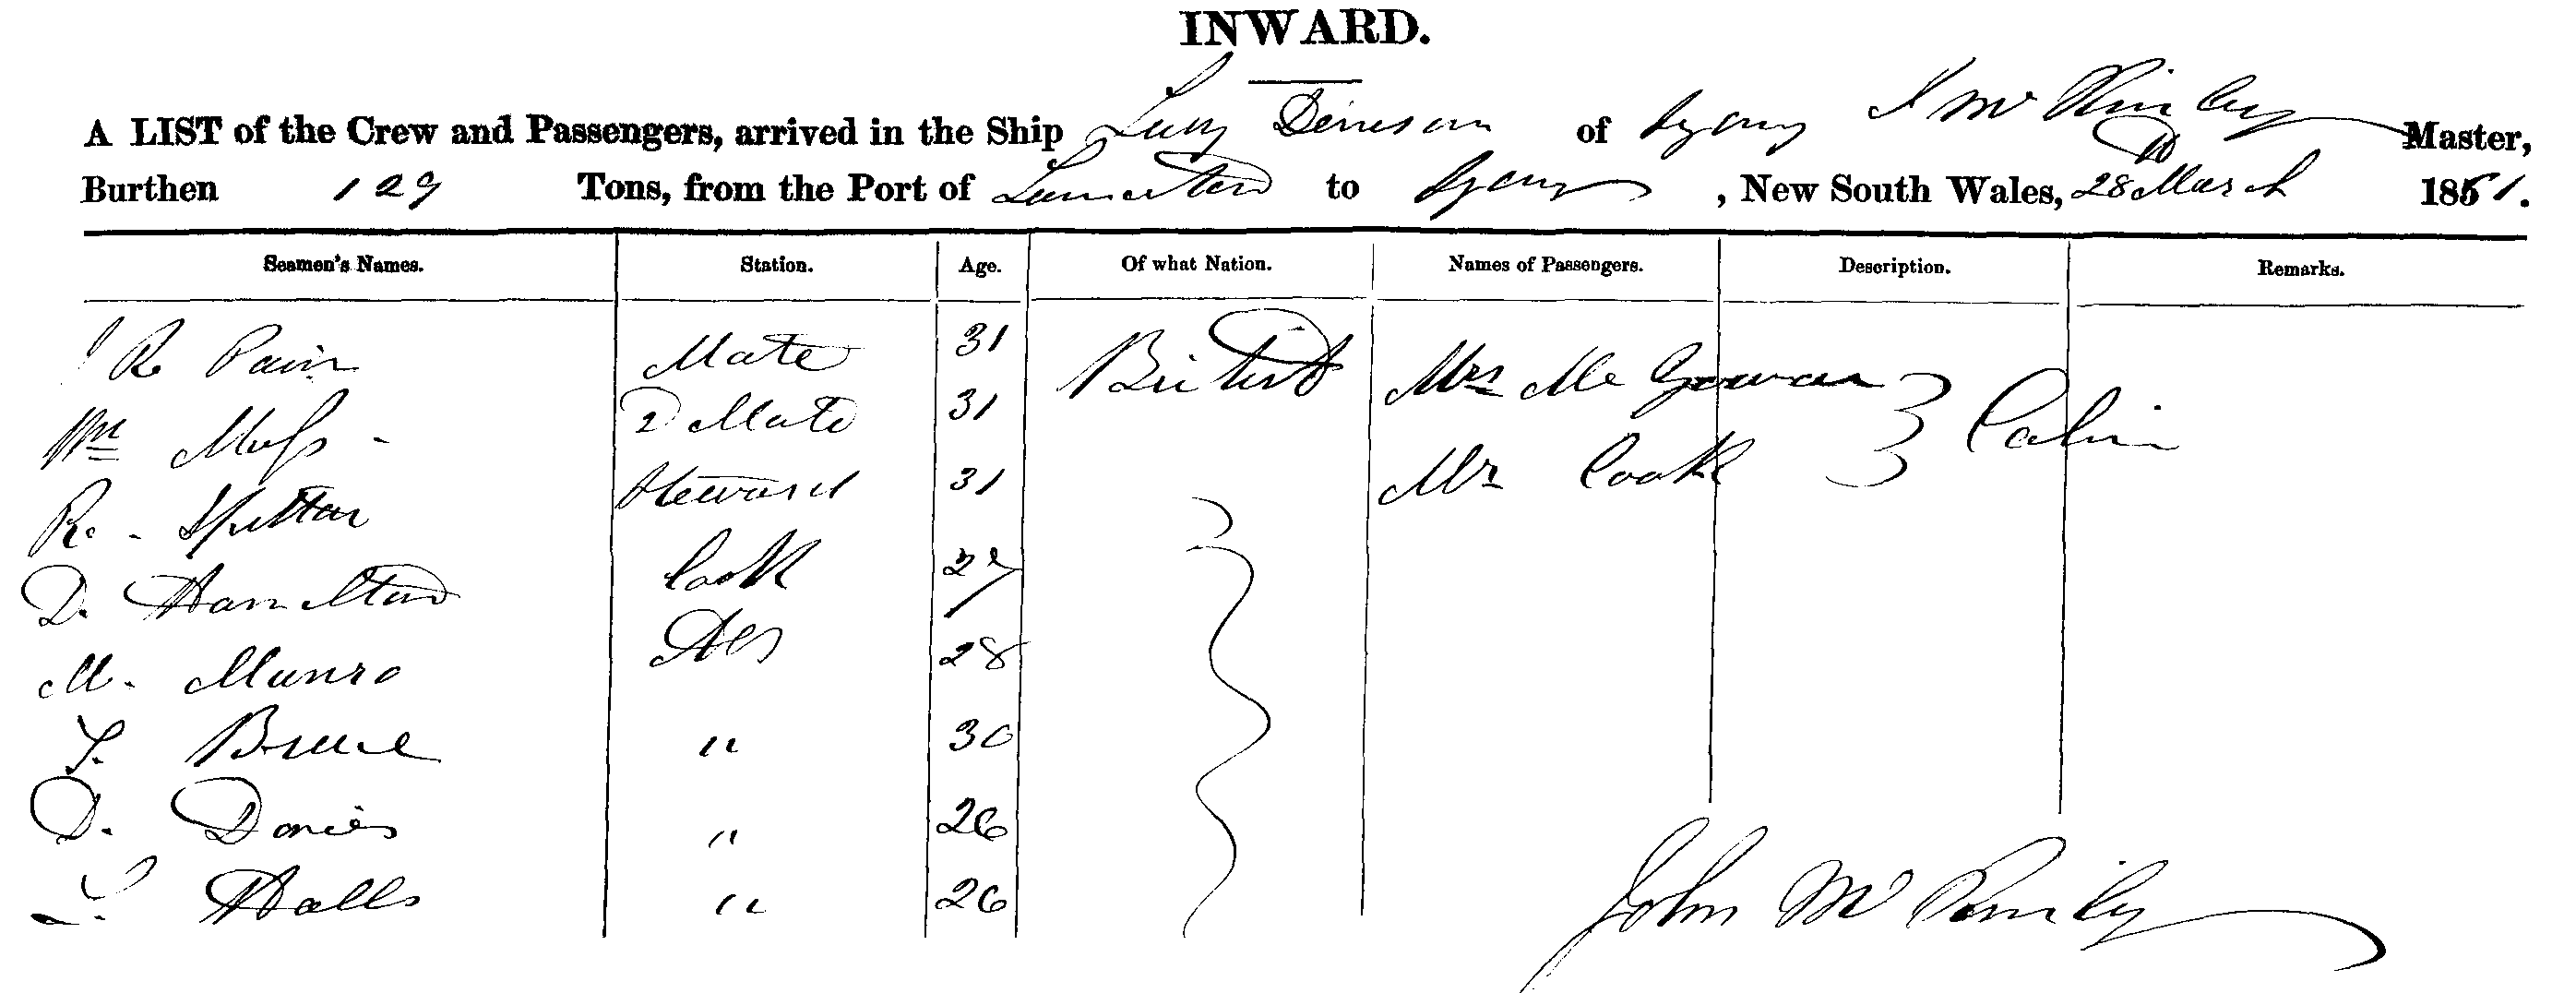 INWARD.
A LIST of the Crew and Passengers, arrived in the Ship Lucy Denison of Sydney J Mc Kinley Master,
Burthen 129 Tons, from the Port of Launceston to Sydney, New South Wales, 28 March 1851.
Seamen's Names. Station. Age. Of what Nation. Names of Passengers. Description. Remarks.
R Pain Mate 31 British Mrs Mc Gowan Cabin
Wm Moss - 2 Mate 31 Mr Cook
R. - Steward 31
D. Hamilton Cook 27
M. Munro AB 28
Bruce " 30
D. Davies " 26
Halls " 26
John Mc Kinley